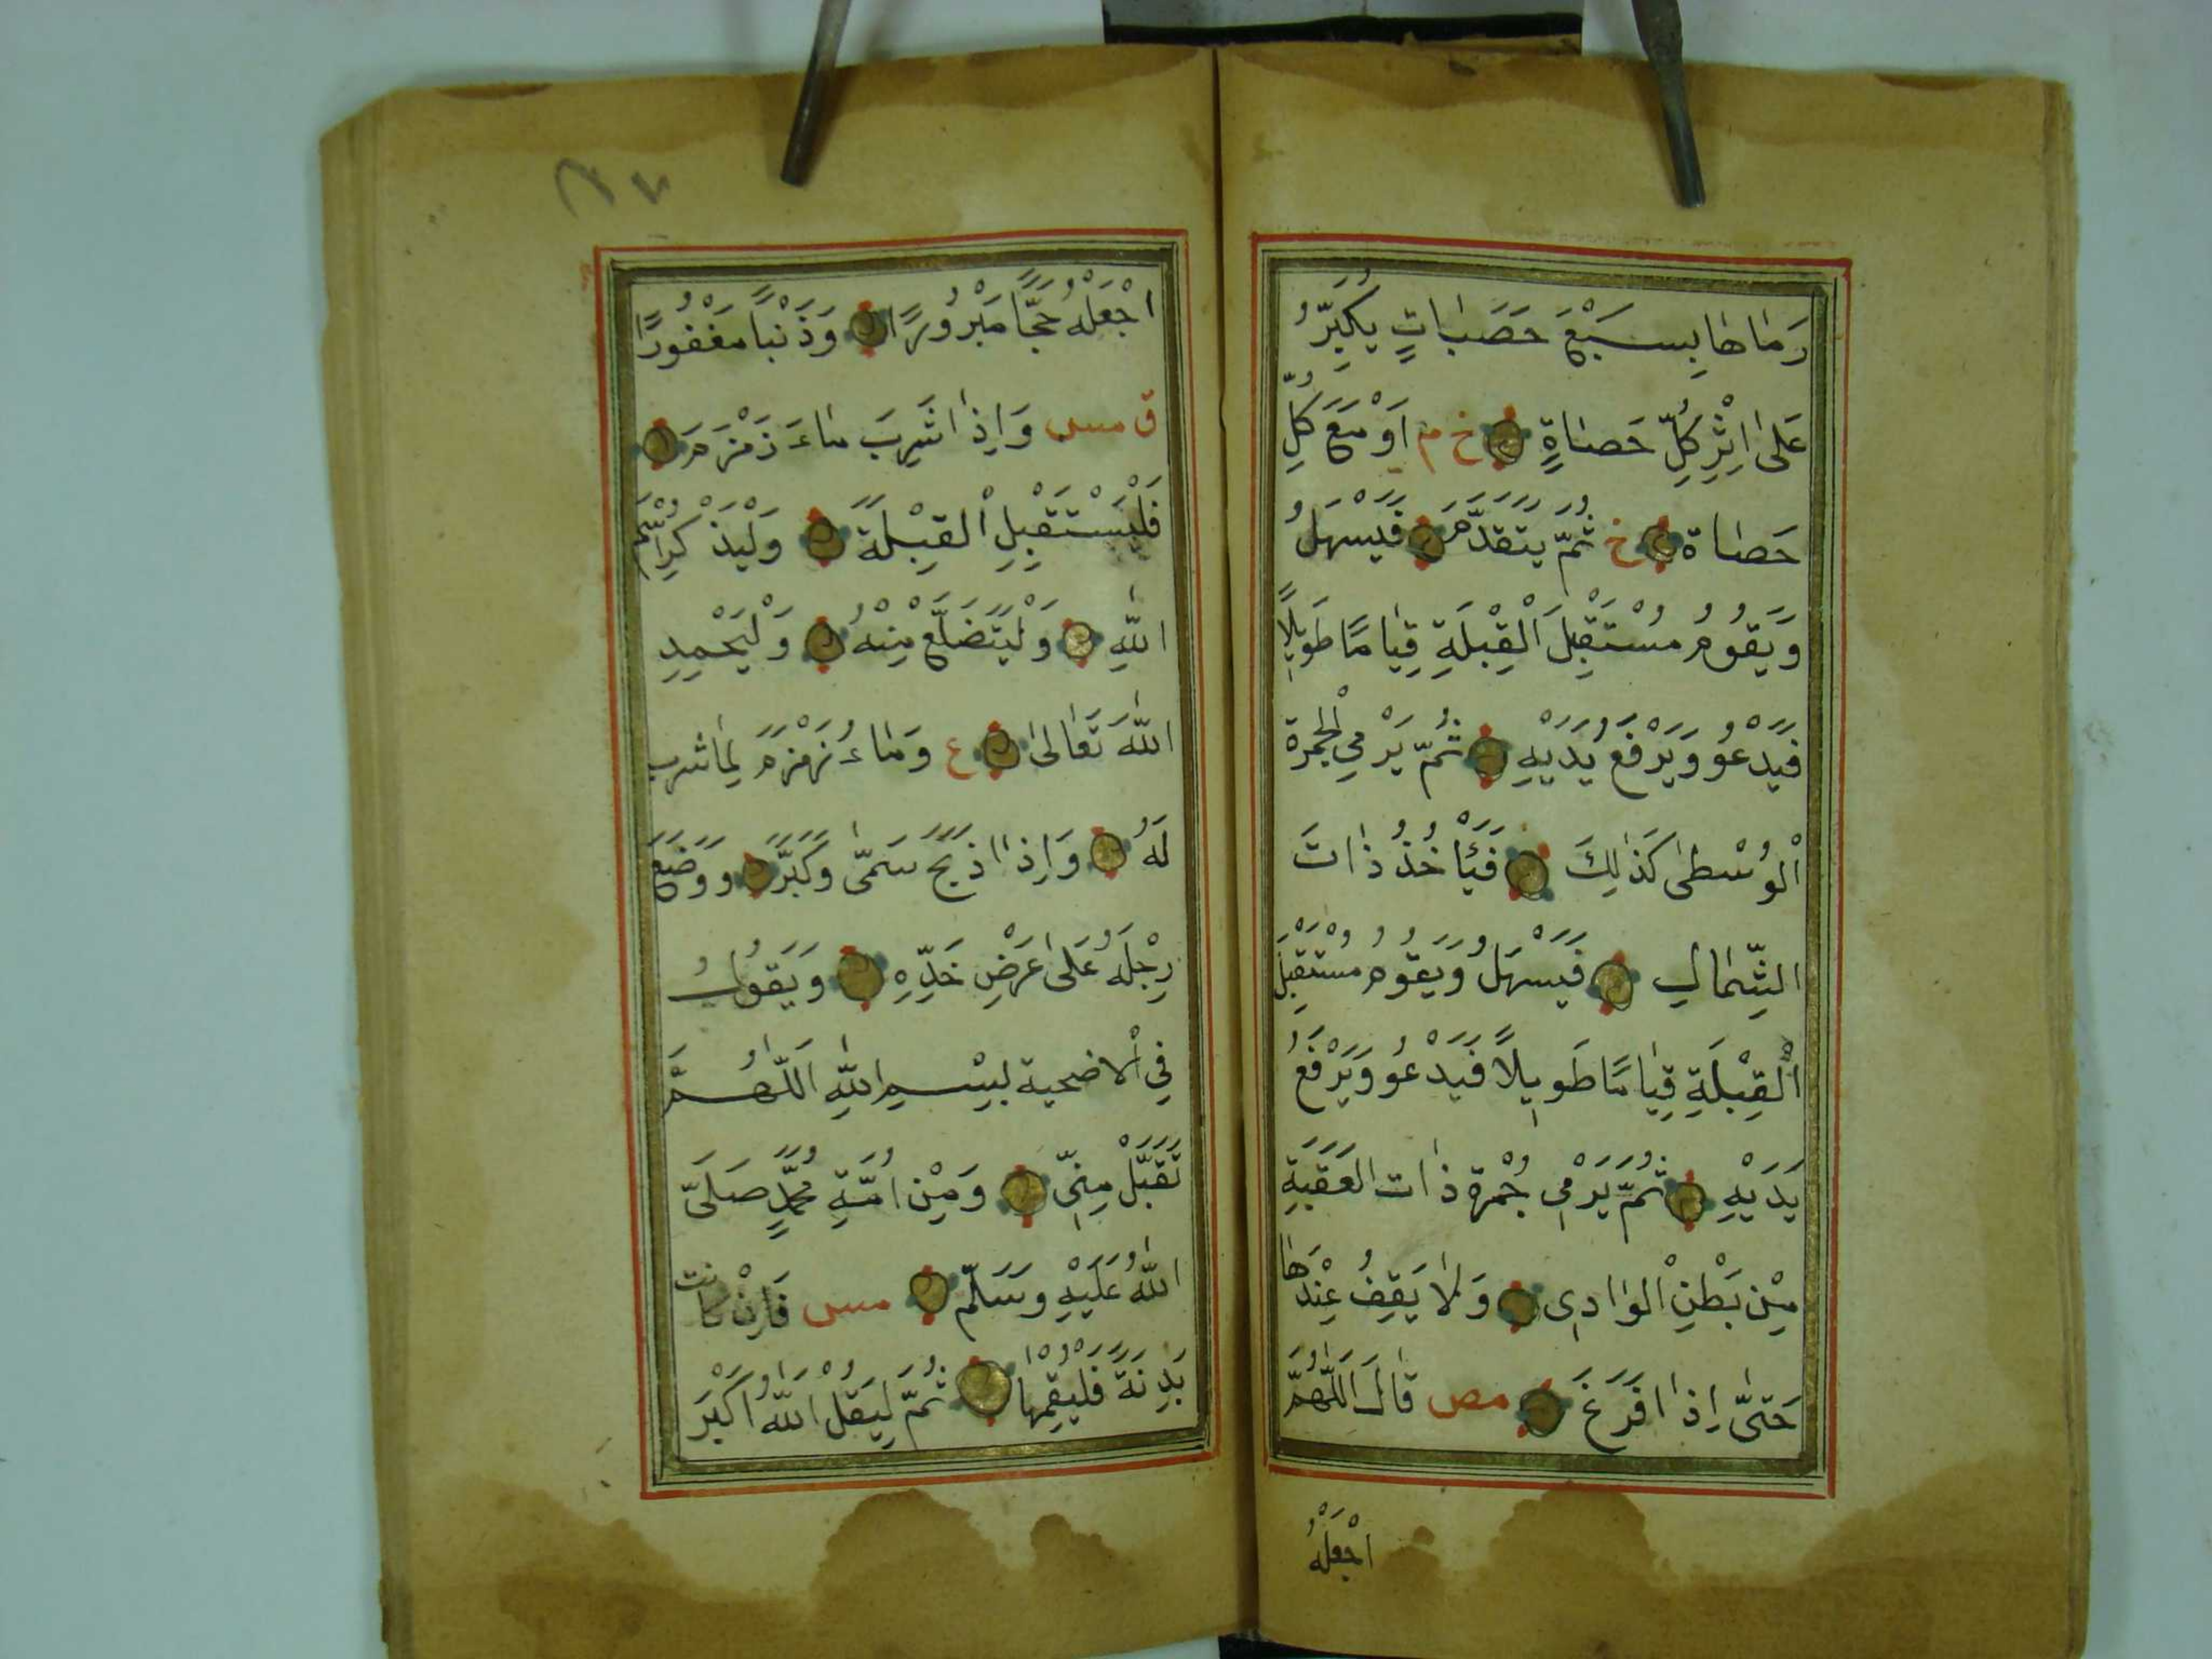 رَمٰاهٰا بِسَبْعَ حَصَبٰاتٍ يُكَبِّرُ
عَلىٰ اِثْرِ كُلِّ حَصٰاةٍ خ م اَوْ مَعَ كُلِّ
حَصٰاة خ ثُمَّ يَتَقَدَّمَ فَيَسْهَلُ
وَيَقُومُ مُسْتَقْبِلَ الْقِبْلَةِ قِيٰامًا طَوِيلًا
فَيَدْعُو وَيَرْفَعُ يَدَيْهِ ثُمَّ يَرْمِي الْجَمْرَة
الْوُسْطىٰ كَذٰلِكَ فَيَأْخُذُ ذٰاتَ
الشِّمٰالِ فَيَسْهَلُ وَيَقُومُ مُسْتَقْبِلَ
الْقِبْلَةِ قِيٰامًا طَوِيلًا فَيَدْعُو وَيَرْفَعُ
يَدَيْهِ ثُمَّ يَرْمِي جُمْرَة ذٰات العَقَبَةِ
مِنْ بَطْنِ الْوٰادِي وَلٰا يَقِفُ عِنْدَهٰا
حَتىّٰ اِذٰا فَرَغَ مص قٰالَ اَللّٰهُمَّ
اجْعَلْهُ
٢٧
اجْعَلْهُ حَجًّا مَبْرُورًا وَذَنْبًا مَغْفُورًا
ق مس وَاِذٰا شَرِبَ مٰاءَ زَمْزَمَ
فَلْيَسْتَقْبِلِ الْقِبْلَةَ وَلْيَذْكُرِ اسْمَ
اللّٰهِ وَلْيَتَضَلَّعْ مِنْهُ وَلْيَحْمِدِ
اللّٰهَ تَعٰالىٰ ع وَمٰاءُ زَمْزَمَ لِمٰا شرب
لَهُ وَاِذٰا ذَبَحَ سَمىّٰ وَكَبَّرَ وَوَضَعَ
رِجْلَهُ عَلىٰ عَرْضِ خَدِّهِ وَيَقُولُ
فِي الْاضحية بِسْمِ اللّٰهِ اَللّٰهُمَّ
تَقَبَّلْ مِنّي وَمِنْ اُمَّةِ مُحَمَّدٍ صَلَىّ
اللّٰهُ عَلَيْهِ وَسَلَّمَ مس فَاِنْ كانت
بَدِنَةً فَلْيُقِمْهٰا ثُمَّ لِيَقُلْ اَللّٰهُ اَكْبَرَ